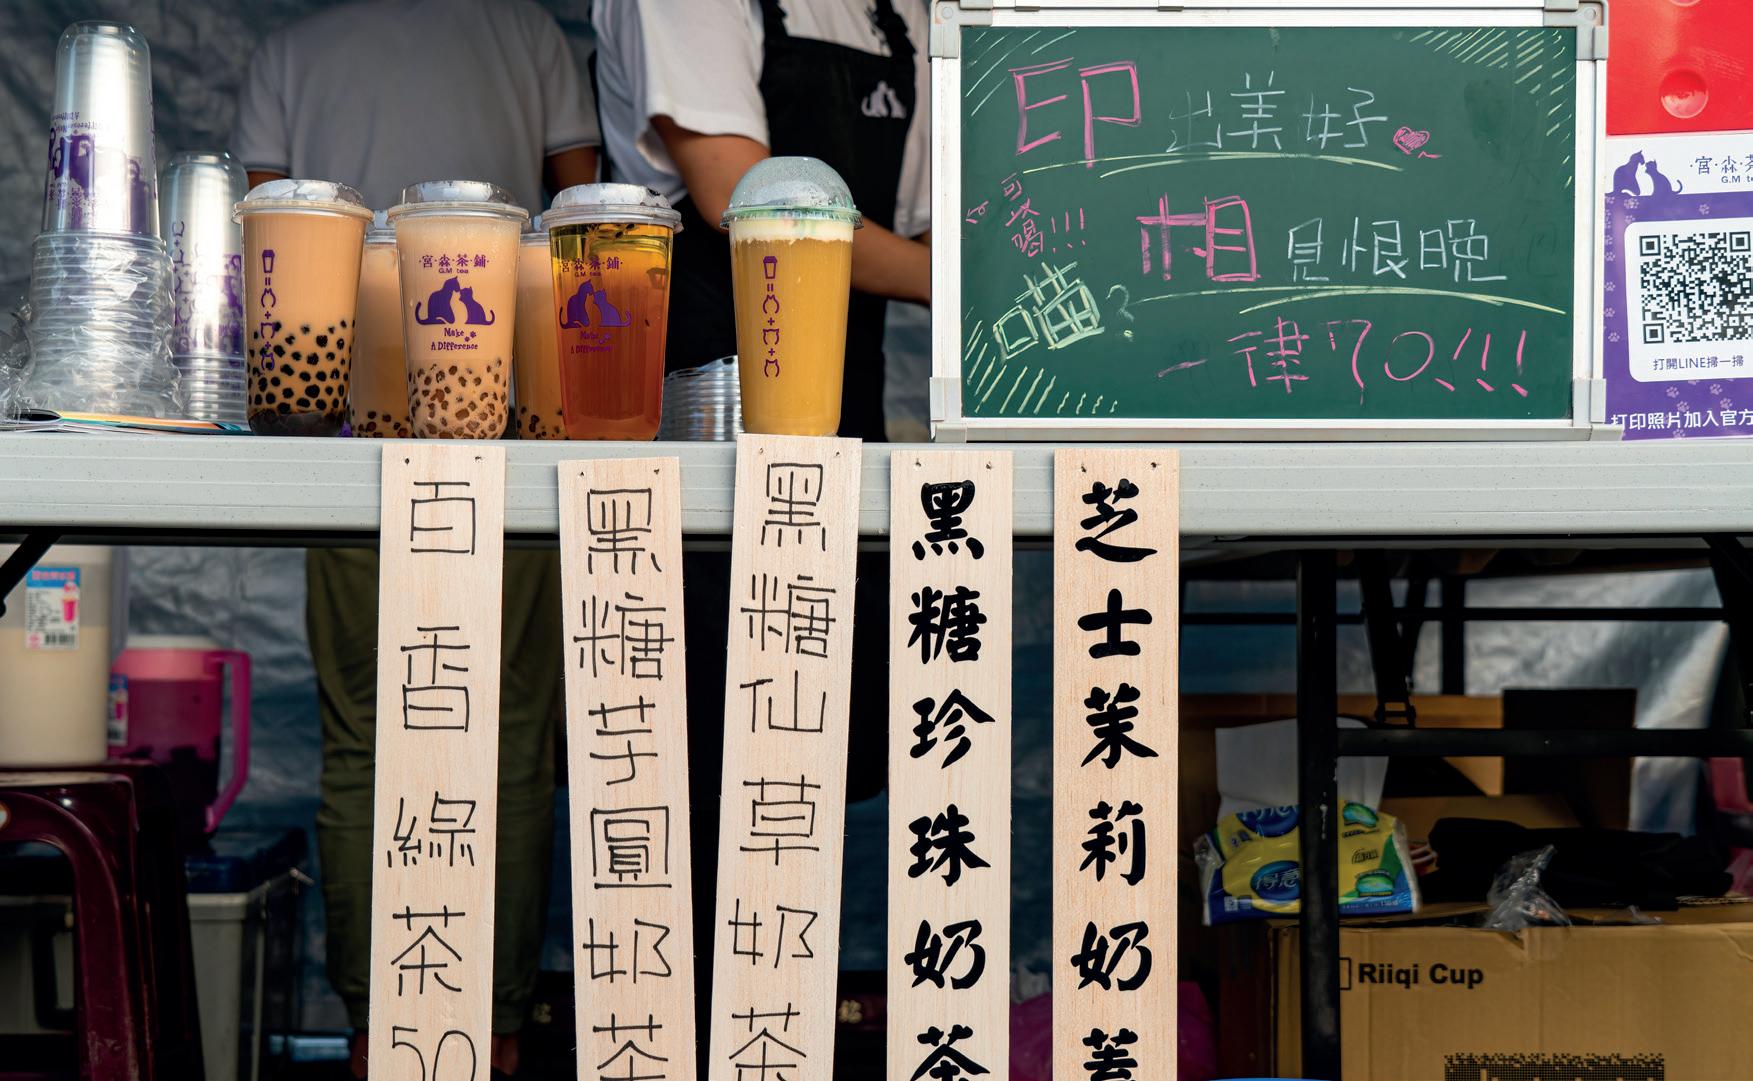 印出美好
相見恨晚
可以喝!!!
喵?
一律70!!!
宮·森·茶
G.M te
打開LINE掃一掃
打印照片加入官方
·宮·森·茶·鋪·
G.M tea
Make
A Difference
宮·森·茶·鋪·
G.M tea
Make
A Difference
百香綠茶50
黑糖芋圓奶茶
黑糖仙草奶茶
黑糖珍珠奶茶
芝士茉莉奶蓋
得意
Riiqi Cup